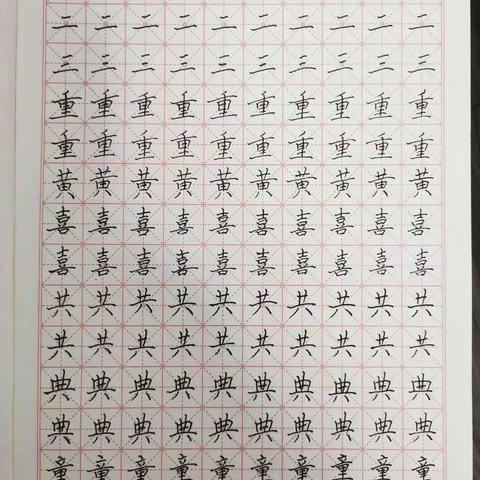 二二二二二二二二二二
三三三三三三三三三三
重重重重重重重重重重
重重重重重重重重重重
黄黄黄黄黄黄黄黄黄黄
喜喜喜喜喜喜喜喜喜喜
喜喜喜喜喜喜喜喜喜喜
共共共共共共共共共共
共共共共共共共共共共
典典典典典典典典典典
典典典典典典典典典典
童童童童童童童童童童